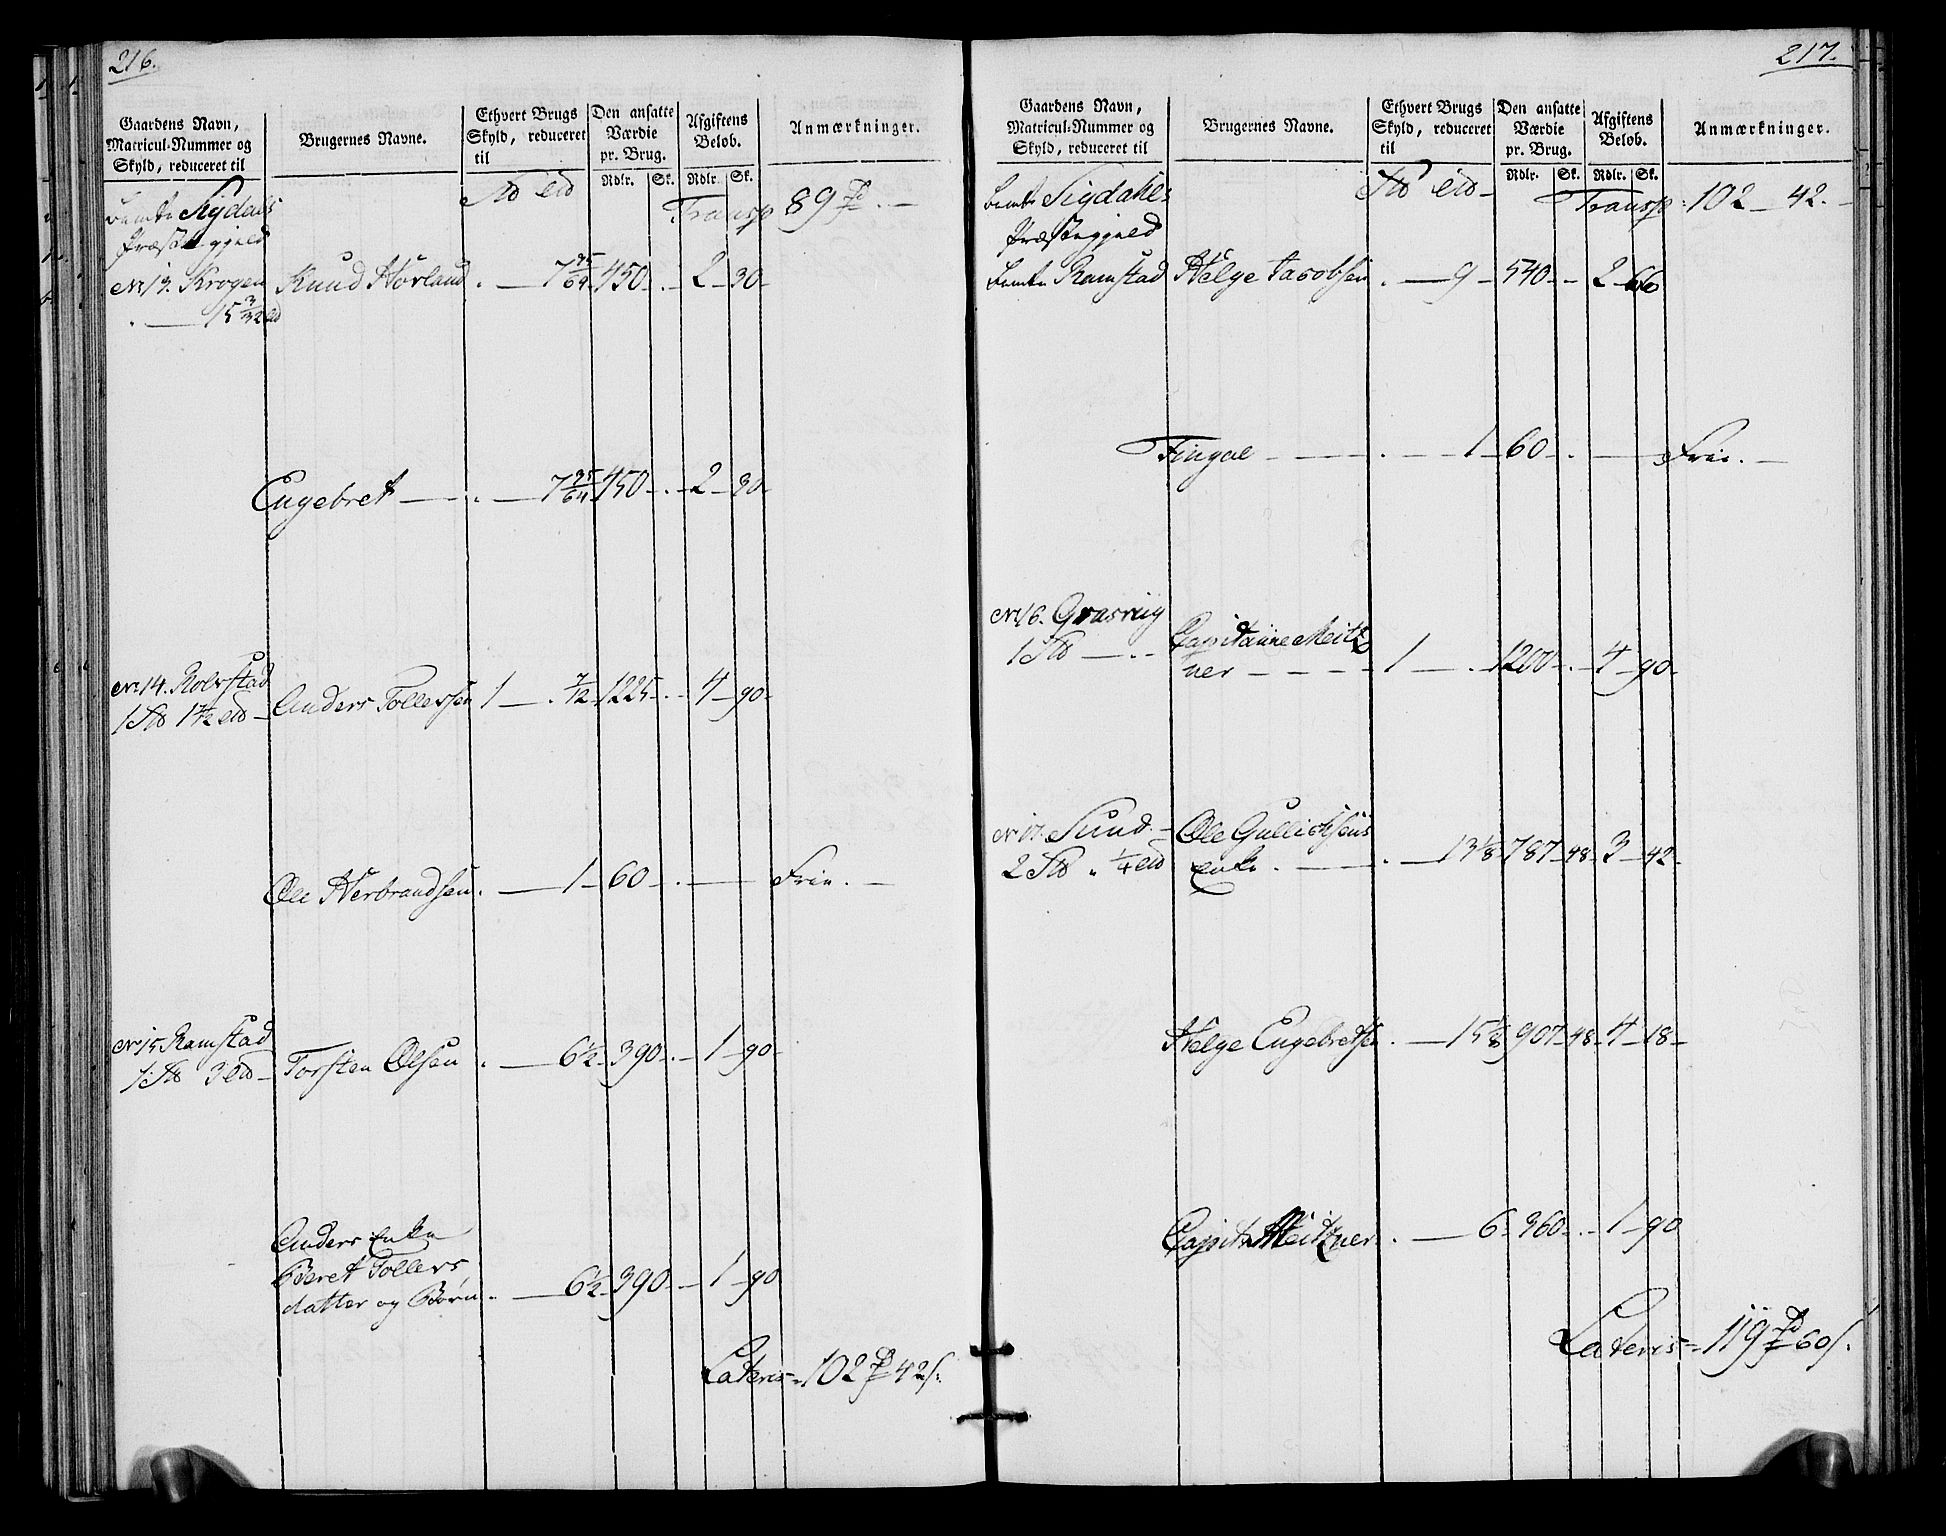 216.
Gaardens Navn,
Matricul-Nummer og
Skyld, reduceret til
Brugernes Navne.
Ethvert Brugs
Skyld, reduceret
til
Den ansatte
Værdie
pr. Brug.
Afgiftens
Beløb.
Anmærkninger.
Rdlr. Sk. Rdlr. Sk.
Transp 89
Sigdals
Præstegjeld
No 13. Krogen Knud Hovland 7 25/64 450 2 30
15 3/32
Engebret 7 25/64 450 2 30
No 14. Rolvstad
Anders Tollefsen 1 7/12 1225 4 90
Ole Herbrandsen 1 60 Frie.
No 15 Ramstad
Torsten Olsen 6 1/2 390 1 90
Anders Enke
Beret Tollevs
datter og Børn 6 1/2 390 1 90
Lateris 102 42
217.
Gaardens Navn,
Matricul-Nummer og
Skyld, reduceret til
Brugernes Navne.
Ethvert Brugs
Skyld, reduceret
til
Den ansatte
Værdie
pr. Brug.
Afgiftens
Beløb.
Anmærkninger.
Rdlr. Sk. Rdlr. Sk.
Transp 102 42
Sigdahls
Præstegjeld
Ramstad Helge Jacobsen 9 540 2 66
Fingal 1 60 Frie.
No 16. Grasvig
Capitaine Meitz
ner 1 1200 4 90
No 17. Sund
Ole Gullichsens
Enke 13 1/8 787 48 3 42
Helge Engebretsen 15 1/8 907 48 4 18
Capit Meitzner 6 360 1 90
Lateris 119 60